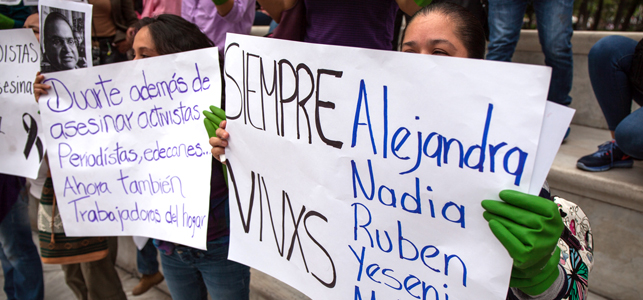 Duarte además de
asesinar activistas
Periodistas, edecanes..
Ahora también
Trabajadoras del hogar
SIEMPRE
VIVXS
Alejandra
Nadia
Ruben
Yeseni